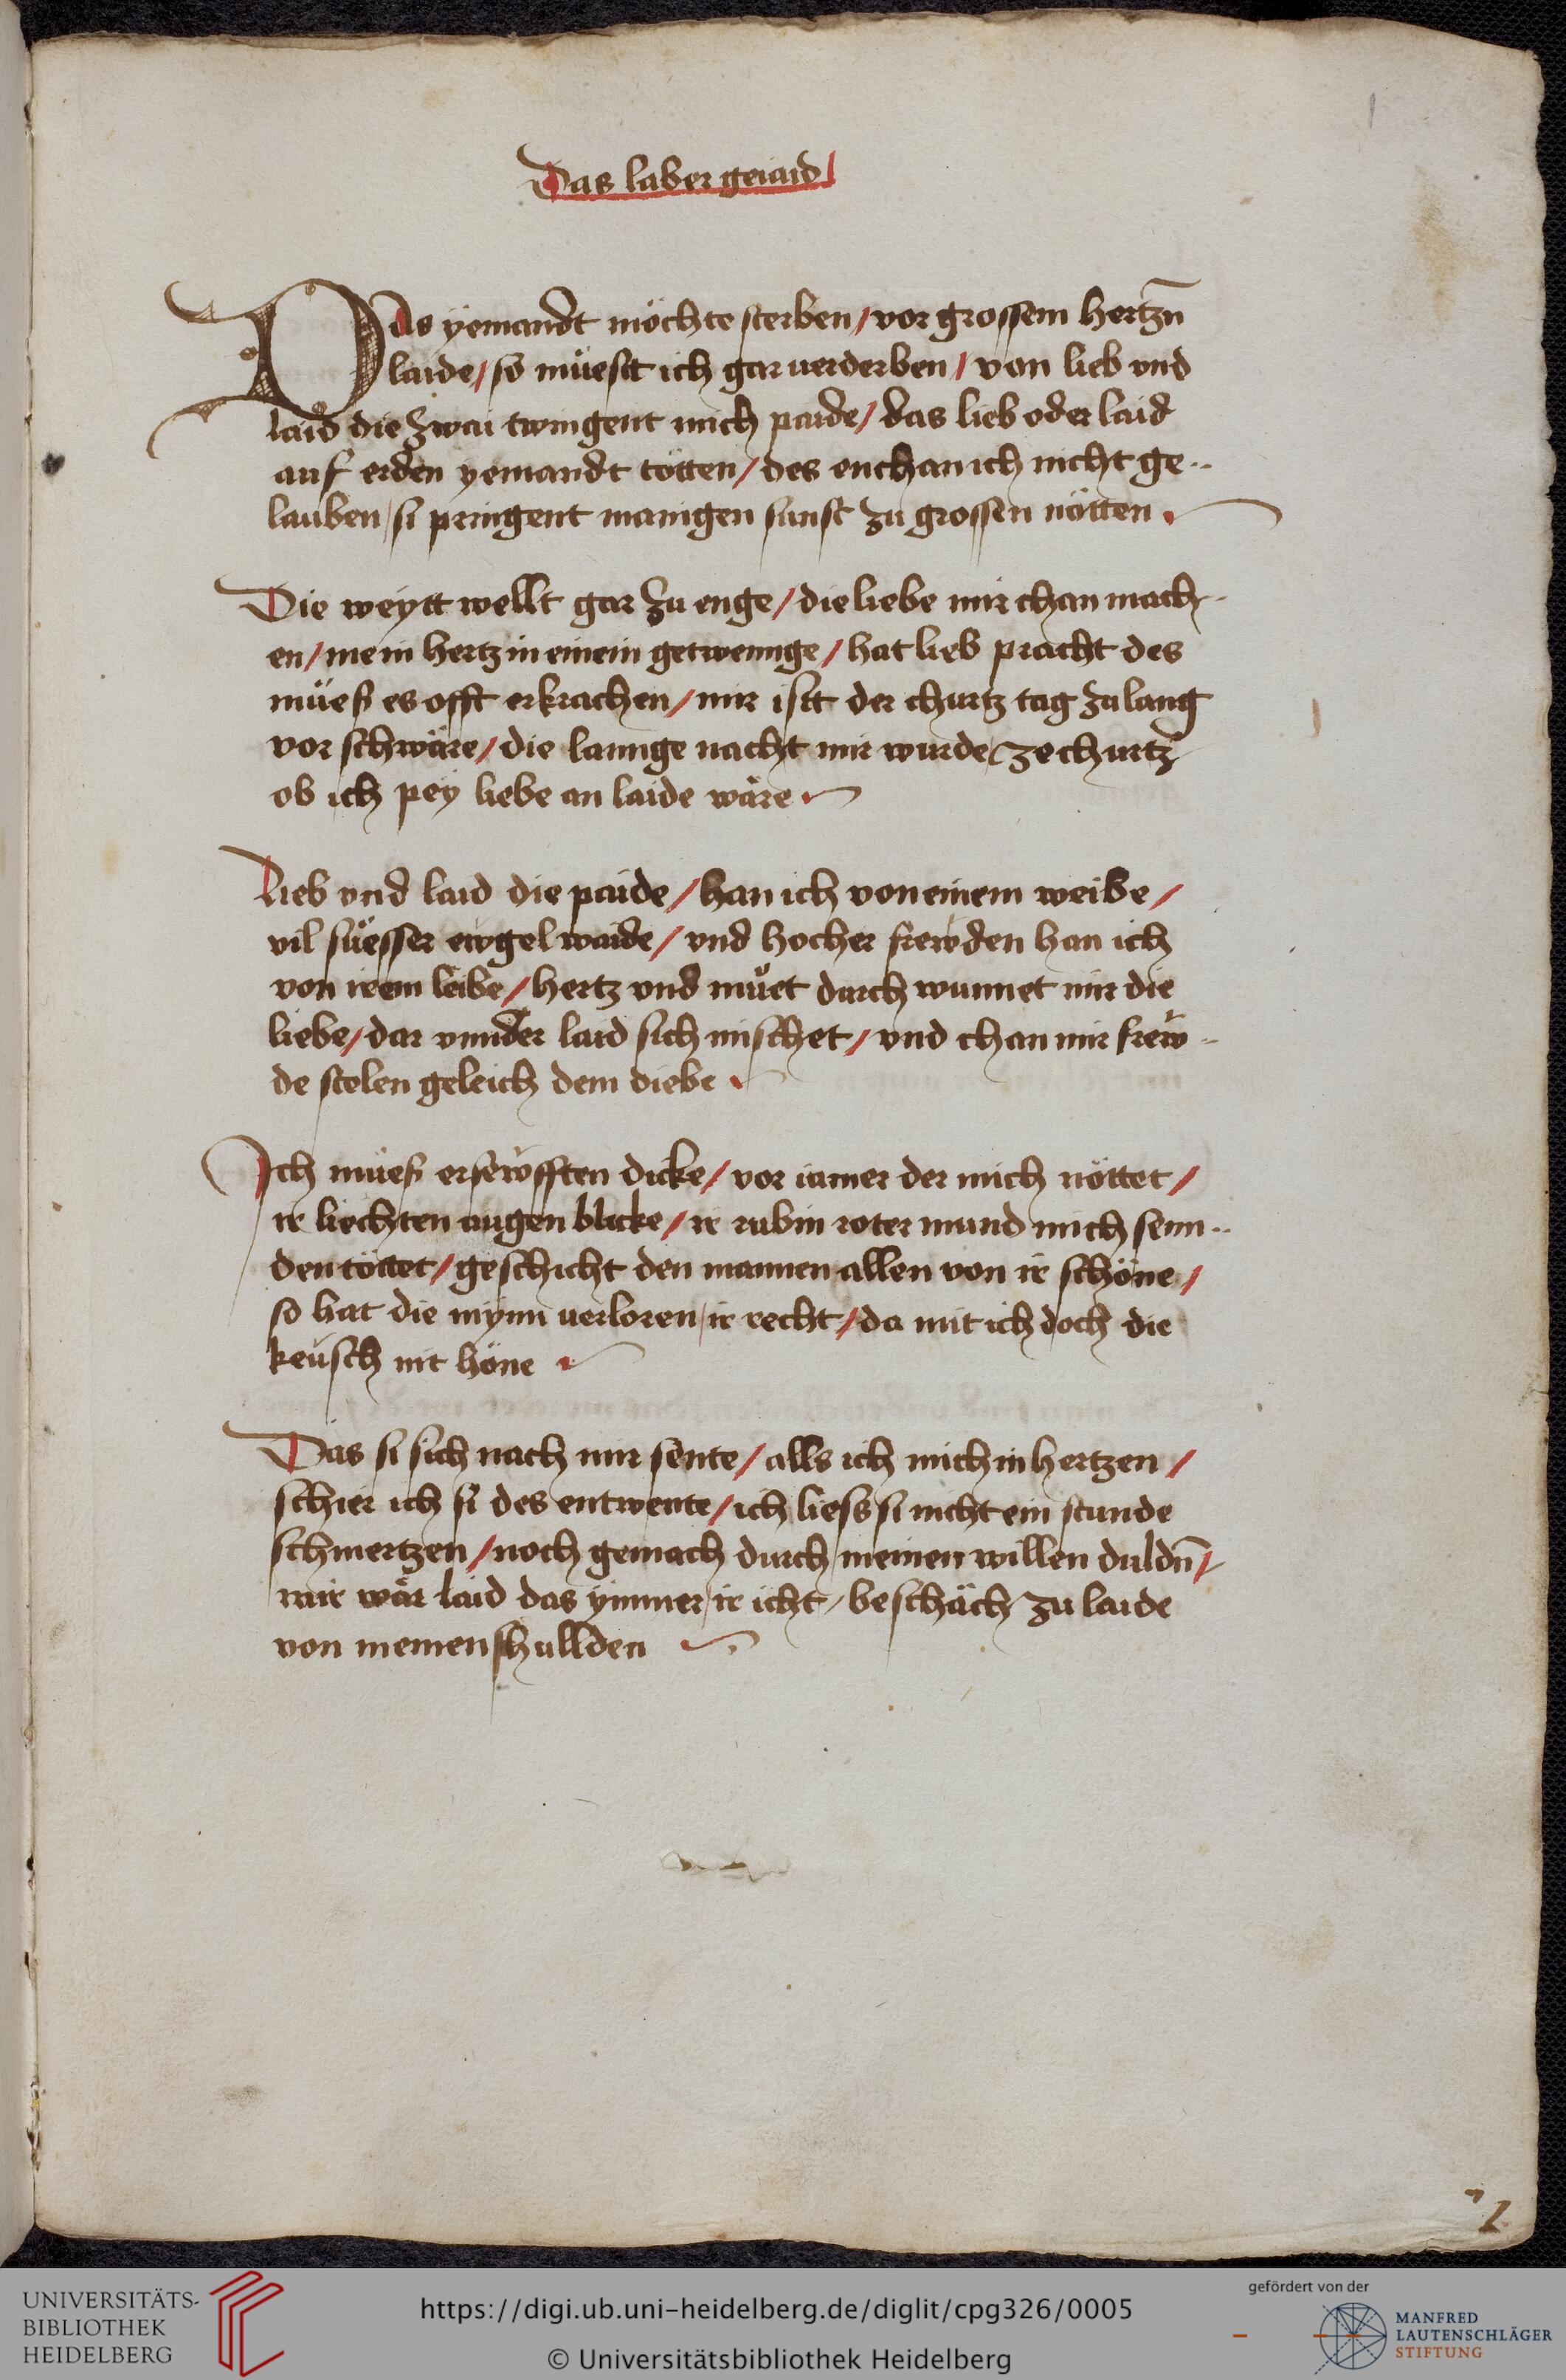 Das laber geiaid
Das ÿemandt möchte sterben / vor grossem hertzn̄
laide / so müestt ich gar uerderben / von lieb vnd
laid die zwai twingent mich paide / das lieb oder laid
auf erden yemandt tötten / des enchan ich nicht ge„
lauben / si pringent manigen sunst zu grossen nötten
Die weytt wellt gar zu enge / die liebe mir chan mach„
en / mein hertz in einem getwennge / hat lieb pracht des
müeß es offt erkrachen / mir istt der churtz tag zu lang
vor schwäre / die lannge nacht mir wurde ze churtz
ob ich pey liebe an laide wäre
Lieb vnd laid die paide / han ich von einem weibe /
vil süesser ewgel waide / vnd hocher frewden han ich
von irem leibe / hertz vnd müet durch wunnet mir die
liebe / dar vnnder laid sich mischet / vnd chan mir frew„
de stelen geleich dem diebe
Ich müeß ersewfften dicke / vor iamer der mich nöttet /
ir liechten augen blicke / ir rubin roter mund mich senn„
den töttet / geschicht den mannen allen von ir schöne /
so hat die mÿnn uerloren / ir recht / da mit ich doch die
keüsch nit höne
Das si sich nach mir sente / alls ich mich in hertzen /
schier ich si des entwente / ich liess si nicht ein stunde
schmertzen / noch gemach durch meinen willen duldn̄ /
mir wär laid das ymmer / ir icht / beschäch zu laide
von meinen schullden
1
UNIVERSITÄTS-
BIBLIOTHEK
HEIDELBERG
https://digi.ub.uni-heidelberg.de/diglit/cpg326/0005
© Universitätsbibliothek Heidelberg
gefördert von der
MANFRED
LAUTENSCHLÄGER
STIFTUNG